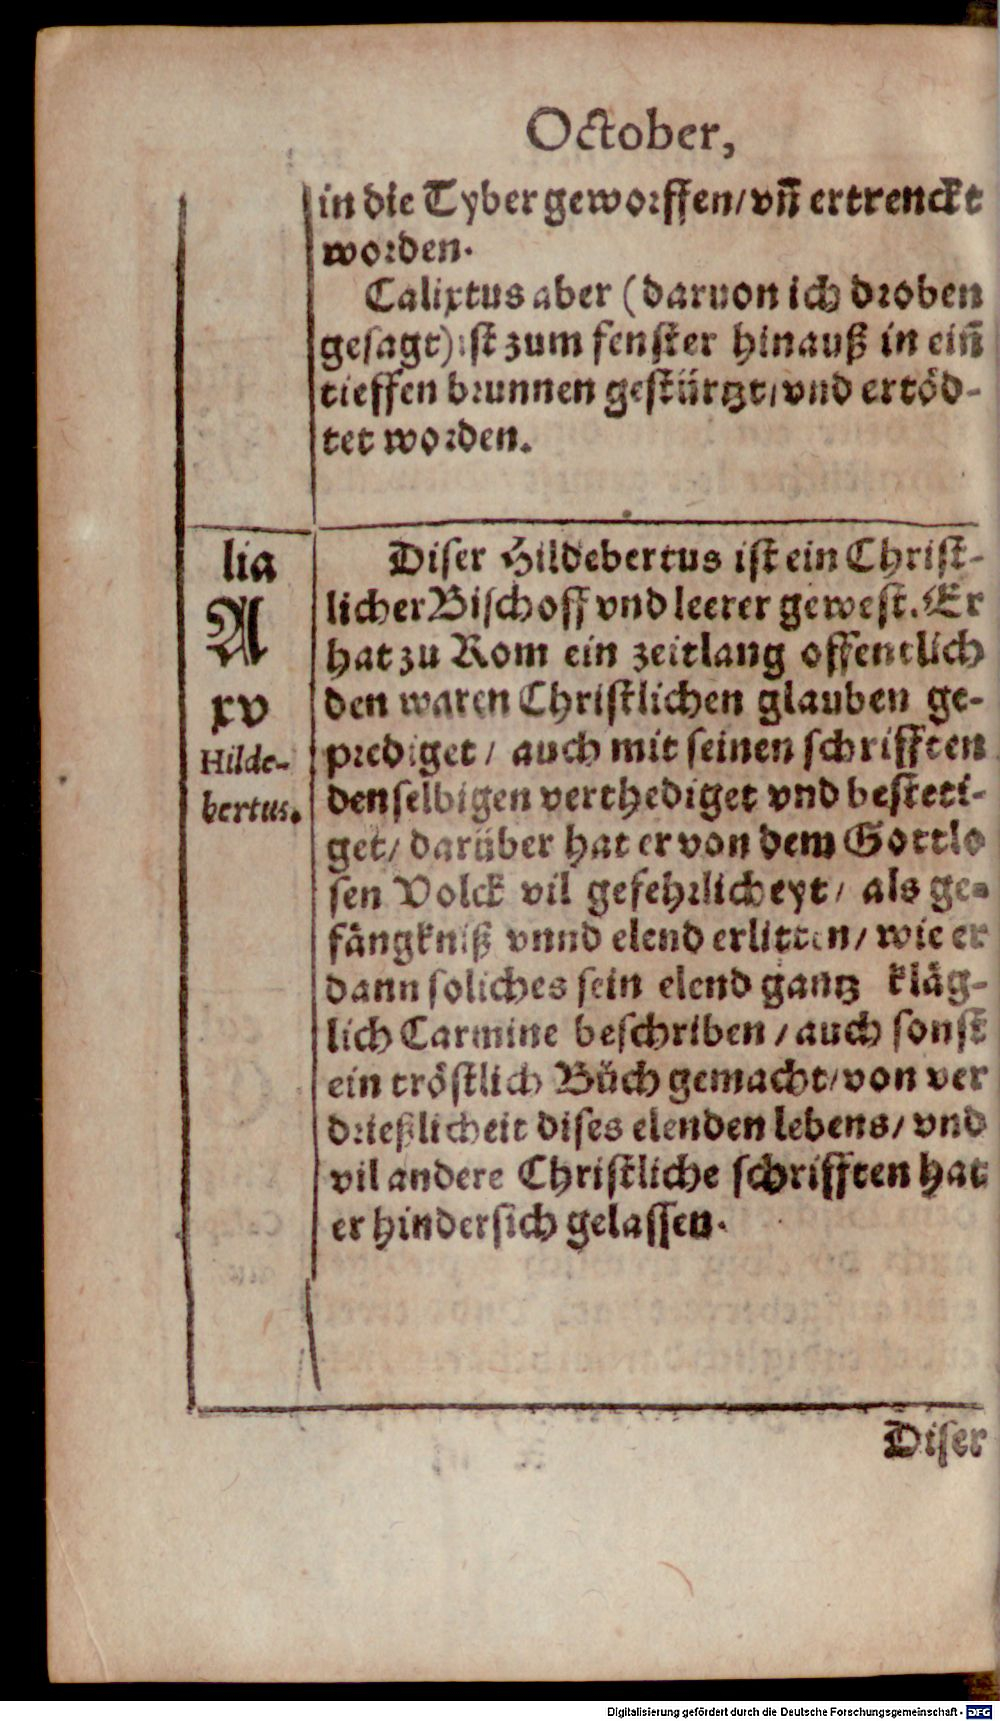 October,
in die Tyber geworffen/ vñ ertrenckt
worden.
Calixtus aber (daruon ich droben
gesagt) ist zum fenster hinauß in eiñ
tieffen brunnen gestürtzt/ vnd ertöd-
tet worden.
lia
A
xv
Hilde-
bertus.
Diser Hildebertus ist ein Christ-
licher Bischoff vnd leerer gewest. Er
hat zu Rom ein zeitlang offentlich
den waren Christlichen glauben ge-
prediget/ auch mit seinen schrifften
denselbigen verthediget vnd besteti-
get/ darüber hat er von dem Gottlo
sen Volck vil gefehrlicheyt/ als ge-
fängkniß vnnd elend erlitten/ wie er
dann soliches sein elend gantz kläg-
lich Carmine beschriben/ auch sonst
ein tröstlich Büch gemacht/ von ver
drießlicheit dises elenden lebens/ vnd
vil andere Christliche schrifften hat
er hindersich gelassen.
Diser
Digitalisierung gefördert durch die Deutsche Forschungsgemeinschaft - DFG